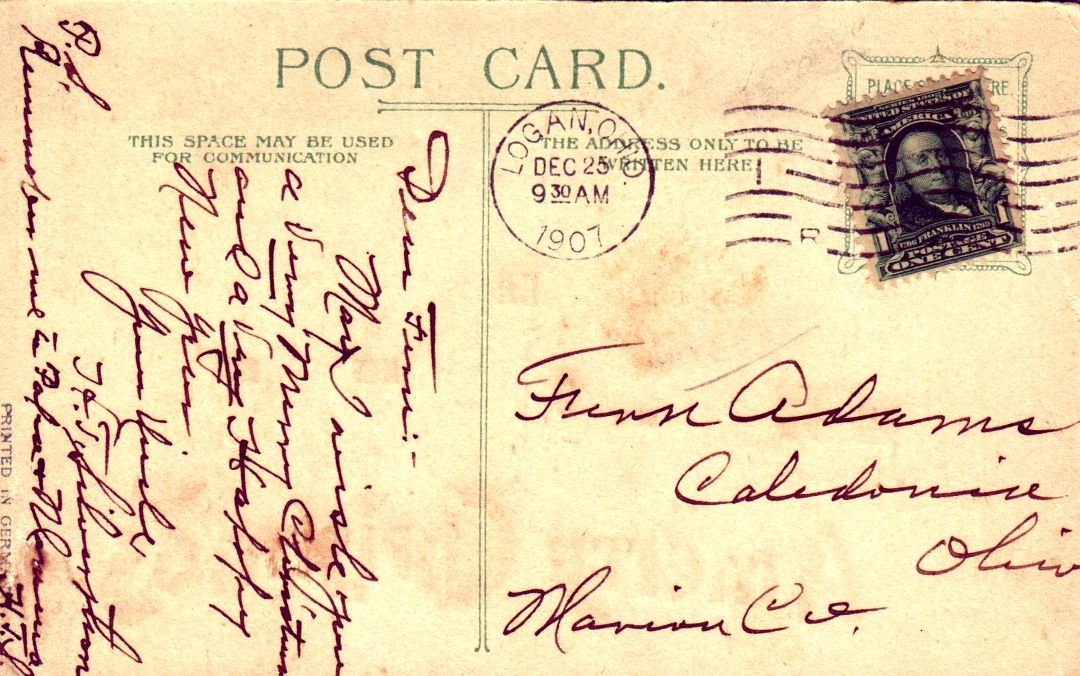 POST CARD.
THIS SPACE MAY BE USED
FOR COMMUNICATION
THE ADDRESS ONLY TO BE
WRITTEN HERE
LOGAN, OHIO.
DEC 25
9 30 AM
1907
PLACE RE
SERIES 1902
UNITED STATES OF
AMERICA
1 1
1706 FRANKLIN 1790
POSTAGE
ONE CENT
Dear Fenn:-
May I wish you
a Very Merry Christmas
and a Very Happy
New Year
Your Uncle
P.S.
Remember me to Papa & Mamma
Fenn Adams
Caledonia
Ohio
Marion Co.
PRINTED IN GERMANY